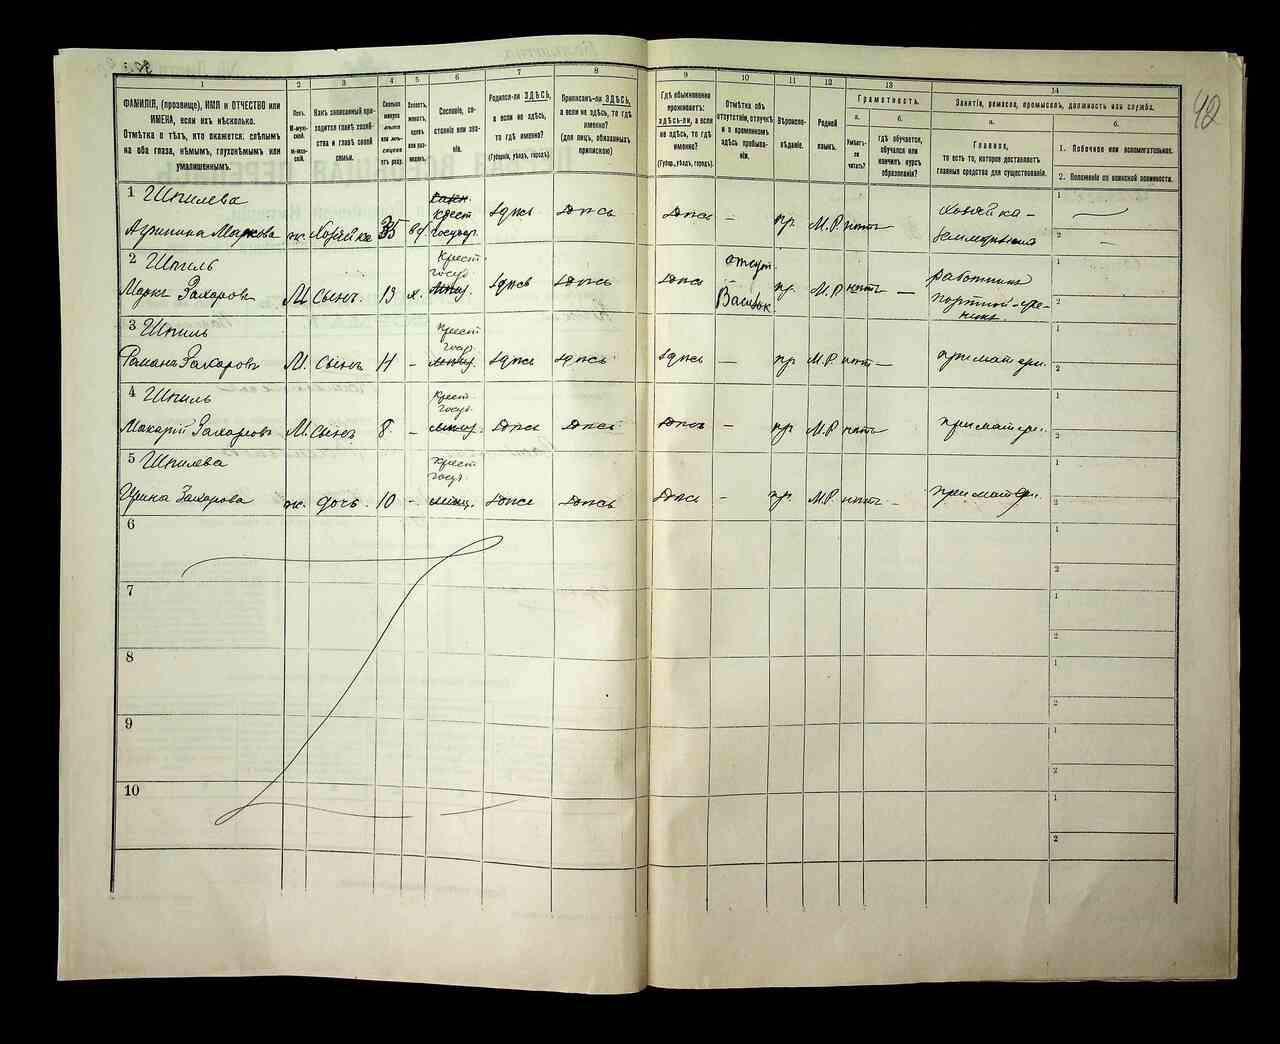 42
1
2
3
4
5
6
7
8
9
10
11
12
13
14
ФАМИЛІЯ, (прозвище), ИМЯ и ОТЧЕСТВО или
ИМЕНА, если ихъ нѣсколько.
Отмѣтка о тѣхъ, кто окажется: слѣпымъ
на оба глаза, нѣмымъ, глухонѣмымъ или
умалишеннымъ.
Полъ.
М-муж-
ской.
Ж-жен-
скій.
Какъ записанный при-
ходится главѣ хозяй-
ства и главѣ своей
семьи.
Сколько
минуло
лѣтъ
или мѣ-
сяцевъ
отъ роду.
Холостъ,
женатъ,
вдовъ
или раз-
веденъ.
Сословіе, со-
стояніе или зва-
ніе.
Родился-ли ЗДѢСЬ,
а если не здѣсь,
то гдѣ именно?
(Губернія, уѣздъ, городъ).
Приписанъ-ли ЗДѢСЬ,
а если не здѣсь, то гдѣ
именно?
(для лицъ, обязанныхъ
припискою)
Гдѣ обыкновенно
проживаетъ:
здѣсь-ли, а если
не здѣсь, то гдѣ
именно?
(Губер., уѣздъ, городъ).
Отмѣтка объ
отсутствіи, отлучкѣ
и о временномъ
здѣсь пребыва-
ніи.
Вѣроиспо-
вѣданіе.
Родной
языкъ.
Грамотность.
а.
Умѣетъ-
ли
читать?
б.
гдѣ обучается,
обучался или
кончилъ курсъ
образованія?
Занятіе, ремесло, промыселъ, должность или служба.
а.
Главное,
то есть то, которое доставляетъ
главныя средства для существованія.
б.
1. Побочное или вспомогательное.
2. Положеніе по воинской повинности.
1 Шпилева
Агрипина Маркова ж. Хозяйка 35 вд. Крест государ. здѣсь здѣсь здѣсь – пр. М.Р. нѣтъ хозяйка-
земледѣлія
2 Шпиль
Маркъ Захаровъ М. Сынъ. 13 х. Крест. госуд. здѣсь здѣсь здѣсь отсут. пр. М.Р. нѣтъ – работникъ
портной-
3 Шпиль
Романъ Захаровъ М. Сынъ 11 – Крест госуд. здѣсь здѣсь здѣсь – пр. М.Р. нѣтъ – при матери.
4 Шпиль
Макарій Захаровъ М. Сынъ 8 – Крест. госуд. здѣсь здѣсь здѣсь – пр. М.Р. нѣтъ при матери.
5 Шпилева
Ирина Захарова ж. дочь. 10 – Крест госуд. здѣсь здѣсь здѣсь – пр. М.Р. нѣтъ – при матери.
6
7
8
9
10